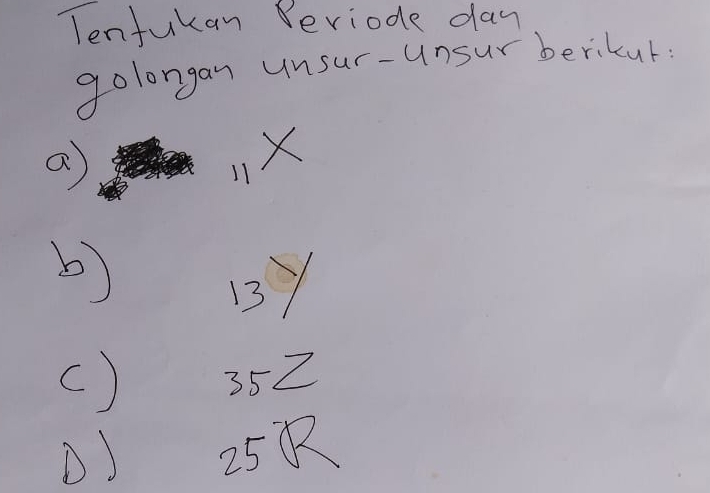 Tentukan Periode dan
golongan unsur-unsur berikut:
a) 11X
b) 13Y
c) 35Z
D) 25R